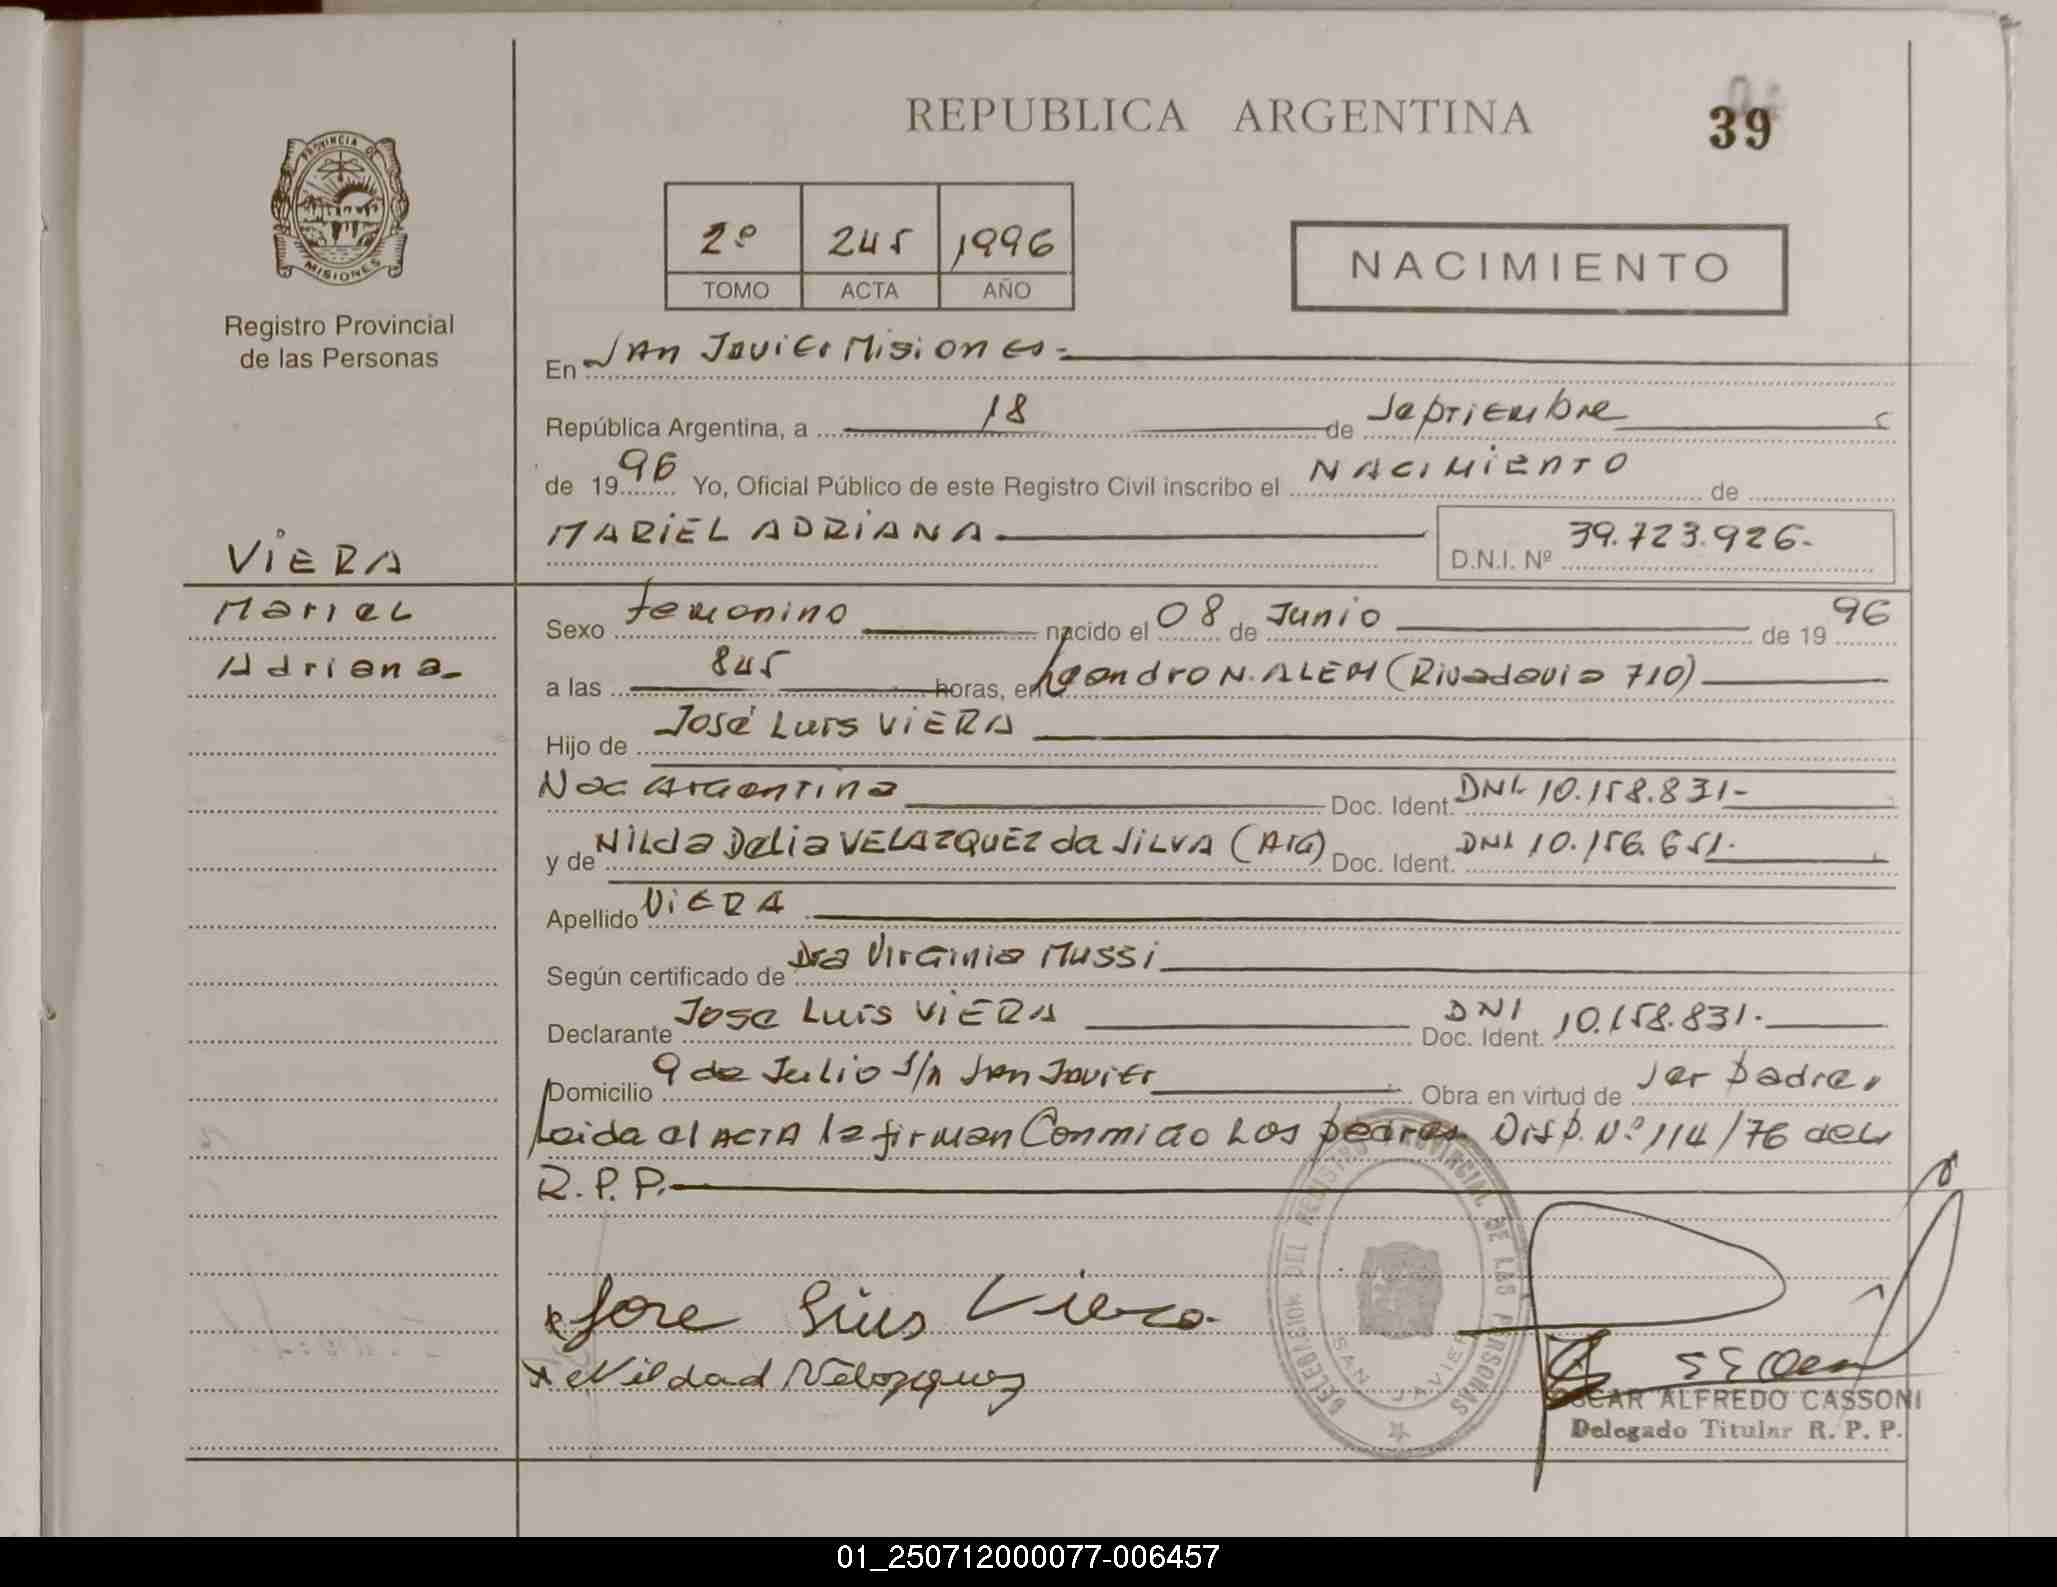 REPUBLICA ARGENTINA
39
PROVINCIA DE
MISIONES
Registro Provincial
de las Personas
2º 245 1996
TOMO ACTA AÑO
NACIMIENTO
En San Javier Misiones.
República Argentina, a 18 de Septiembre
de 1996 Yo, Oficial Público de este Registro Civil inscribo el NACIMIENTO de
MARIEL ADRIANA D.N.I. Nº 39.723.926.
VIERA
Mariel
Adriana
Sexo femenino nacido el 08 de Junio de 1996
a las 845 horas, en Leandro N. ALEM (Rivadavia 710)
Hijo de José Luis VIERA
Nac Argentina Doc. Ident. DNI 10.158.831-
y de Nilda Delia VELAZQUEZ da SILVA (Arg) Doc. Ident. DNI 10.156.651.
Apellido VIERA
Según certificado de Dra Virginia Mussi
Declarante Jose Luis VIERA Doc. Ident. DNI 10.158.831.
Domicilio 9 de Julio s/n San Javier Obra en virtud de ser padre,
Leida el ACTA la firman Conmigo Los padres Disp. Nº 114/76 del
R.P.P.
DELEGACION DEL REGISTRO PROVINCIAL DE LAS PERSONAS
SAN JAVIER
Jose Luis Viera
Nildad Velazquez
OSCAR ALFREDO CASSONI
Delegado Titular R. P. P.
01_250712000077-006457